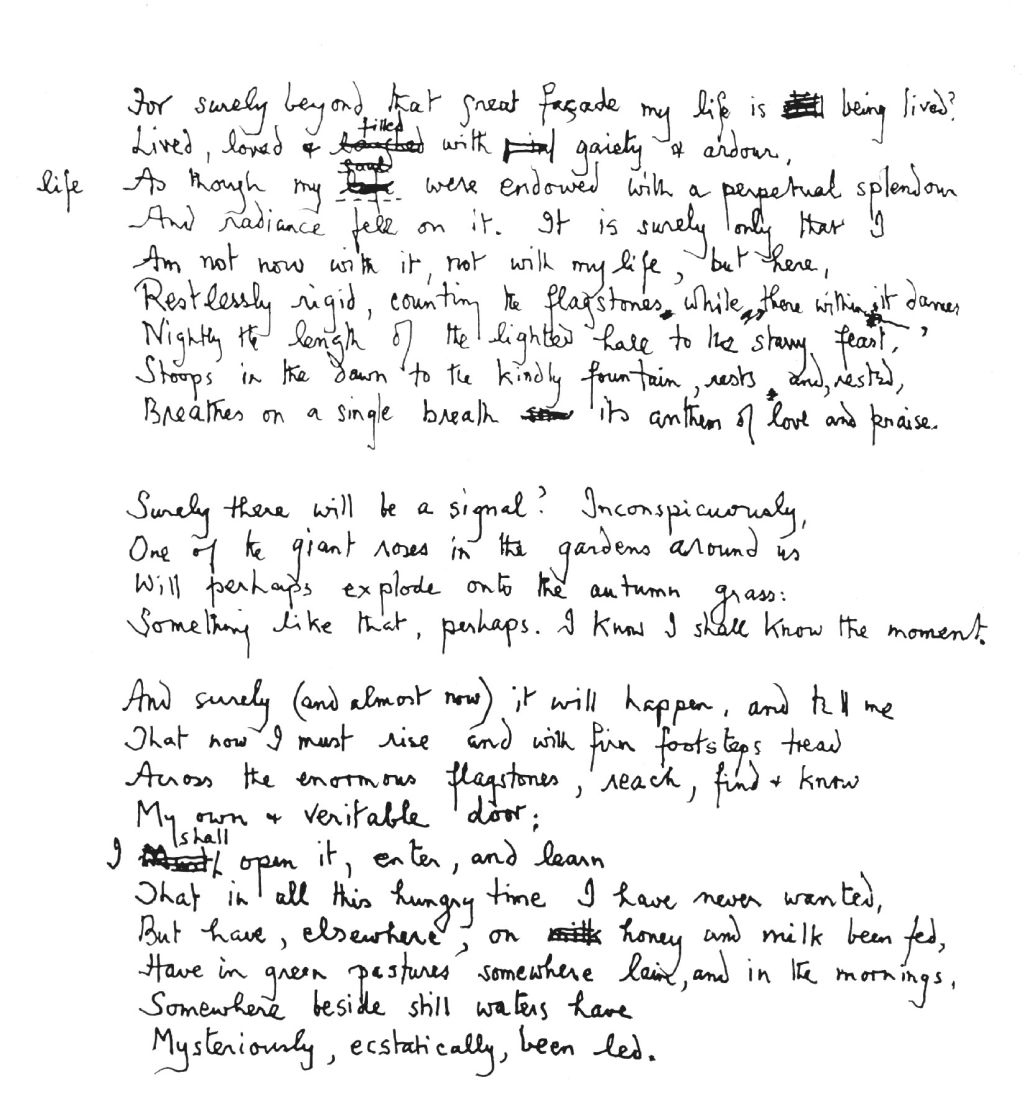 For surely beyond that great façade my life is being lived?
filled
Lived, loved & touched with gaiety & ardour,
soul
life As though my were endowed with a perpetual splendour
And radiance fell on it. It is surely only that I
Am not now with it, not with my life, but here,
Restlessly rigid, counting the flagstones, while, there within, it dances
Nightly the length of the lighted hall to the starry feast,
Stoops in the dawn to the kindly fountain, rests, and, rested,
Breathes on a single breath its anthem of love and praise.
Surely there will be a signal? Inconspicuously,
One of the giant roses in the gardens around us
Will perhaps explode onto the autumn grass:
Something like that, perhaps. I know I shall know the moment.
And surely (and almost now) it will happen, and tell me
That now I must rise and with firm footsteps tread
Across the enormous flagstones, reach, find & know
My own & veritable door;
shall
I must open it, enter, and learn
That in all this hungry time I have never wanted,
But have, elsewhere, on milk honey and milk been fed,
Have in green pastures somewhere lain, and in the mornings,
Somewhere beside still waters have
Mysteriously, ecstatically, been led.